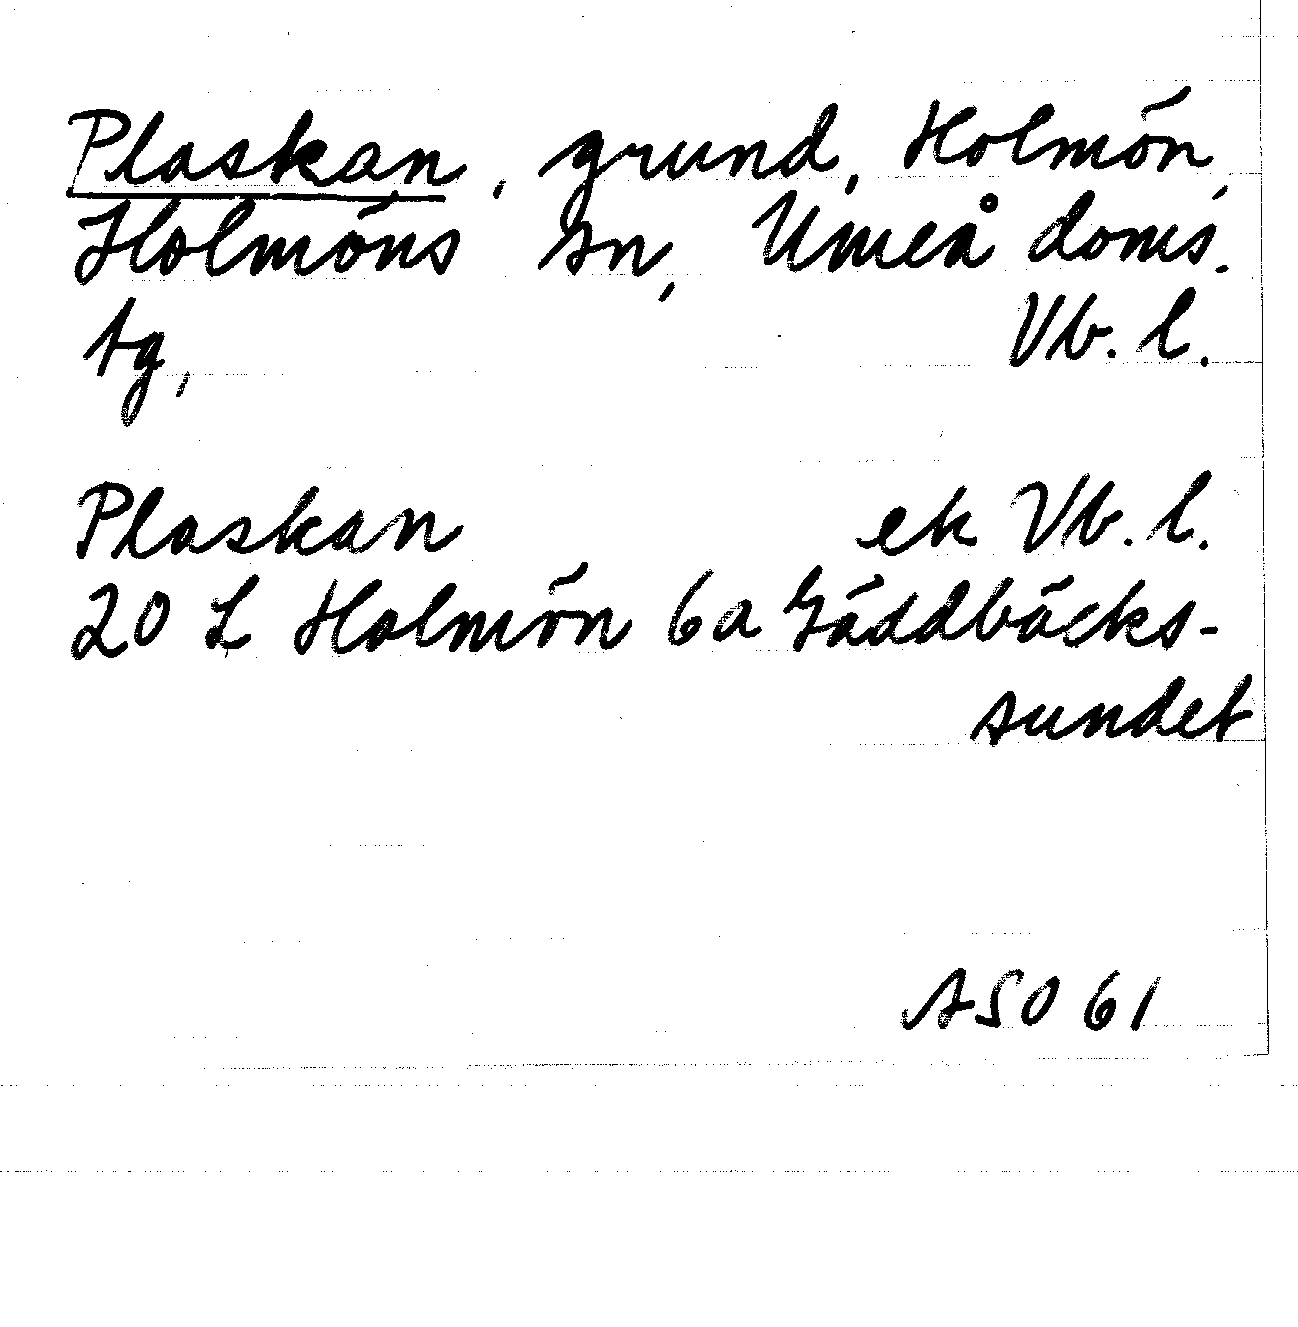 Plaskan, grund, Holmön,
Holmöns sn, Umeå doms.
tg, Vb. l.
Plaskan ek Vb. l.
20 L Holmön 6a Gäddbäcks-
sundet
ASO 61